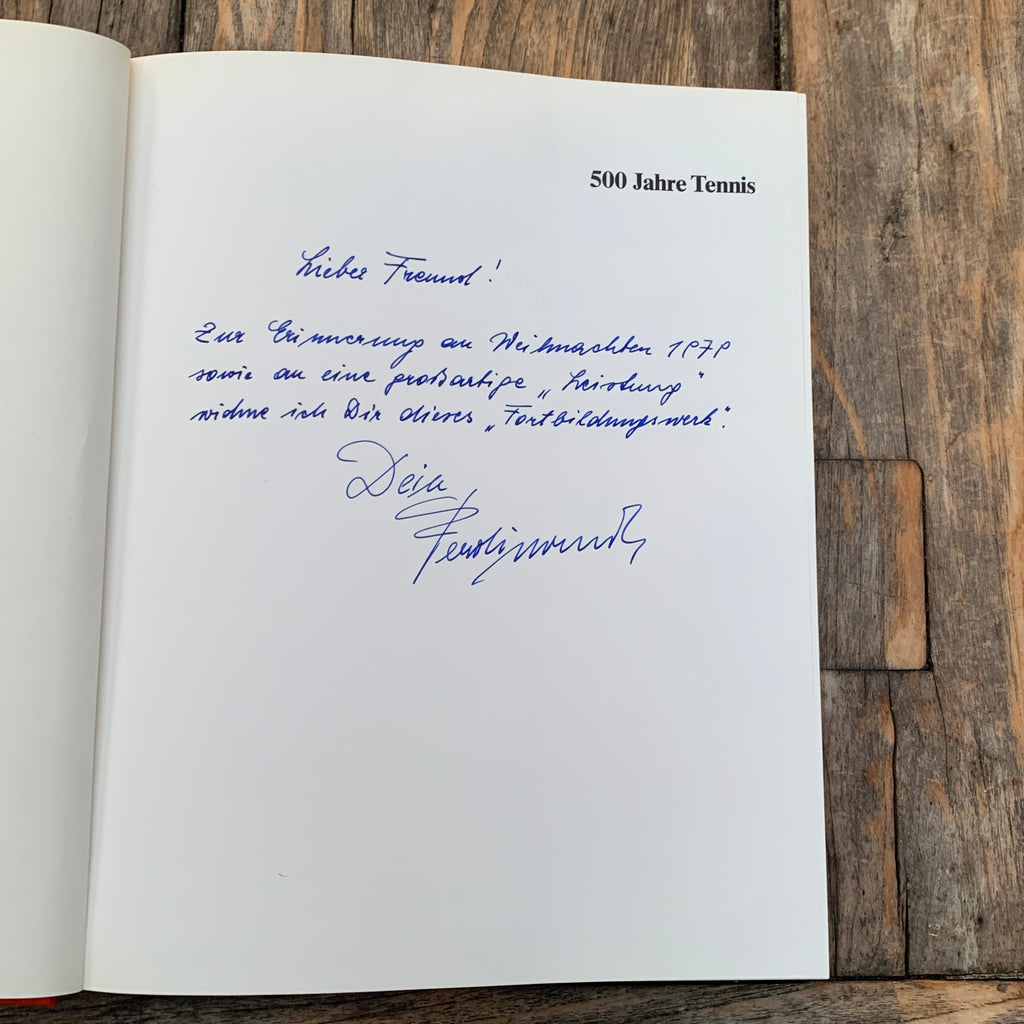 500 Jahre Tennis
Lieber Freund!
Zur Erinnerung an Weihnachten 1979
sowie an eine großartige „Leistung“
widme ich Dir dieses „Fortbildungswerk“.
Dein
Ferdinand